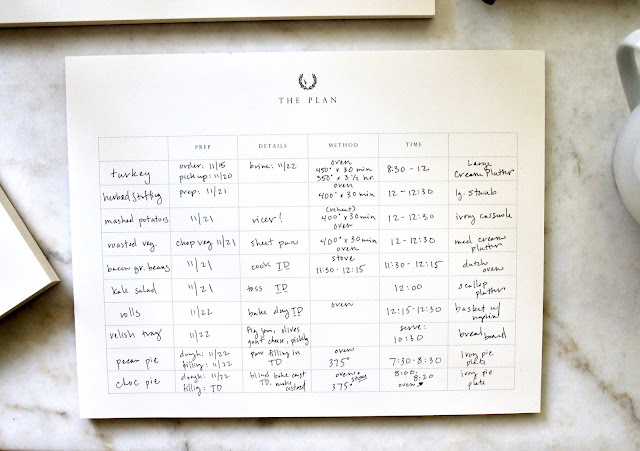 THE PLAN
PREP DETAILS METHOD TIME
turkey
order: 11/15
pick up: 11/20
brine: 11/22
oven
450° x 30 min
350° x 3 1/2 hr.
8:30 - 12
Large
Cream Platter
herbed stuffing
prep: 11/21
oven
400° x 30 min
12 - 12:30
lg. staub
mashed potatoes
11/21
ricer!
(reheat)
400° x 30 min
oven
12 - 12:30
ivory casserole
roasted veg.
chop veg 11/21
sheet pan
400° x 30 min
oven
12 - 12:30
med cream
platter
bacon gr. beans
11/21
cook TD
stove
11:30 - 12:15
11:30 - 12:15
dutch
oven
kale salad
11/21
toss TD
12:00
scallop
platter
rolls
11/22
bake day TD
oven
12:15 - 12:30
basket w/
napkin
relish tray
11/22
fig jam, olives
goat cheese, pickles
serve:
10:30
bread board
pecan pie
dough: 11/22
filling: 11/22
pour filling in
TD
oven
375°
7:30 - 8:30
ivory pie
plate
choc pie
dough: 11/22
filling: TD
blind bake crust
TD, make
custard
oven +
stove
375°
8:00-
8:20
oven
ivory pie
plate